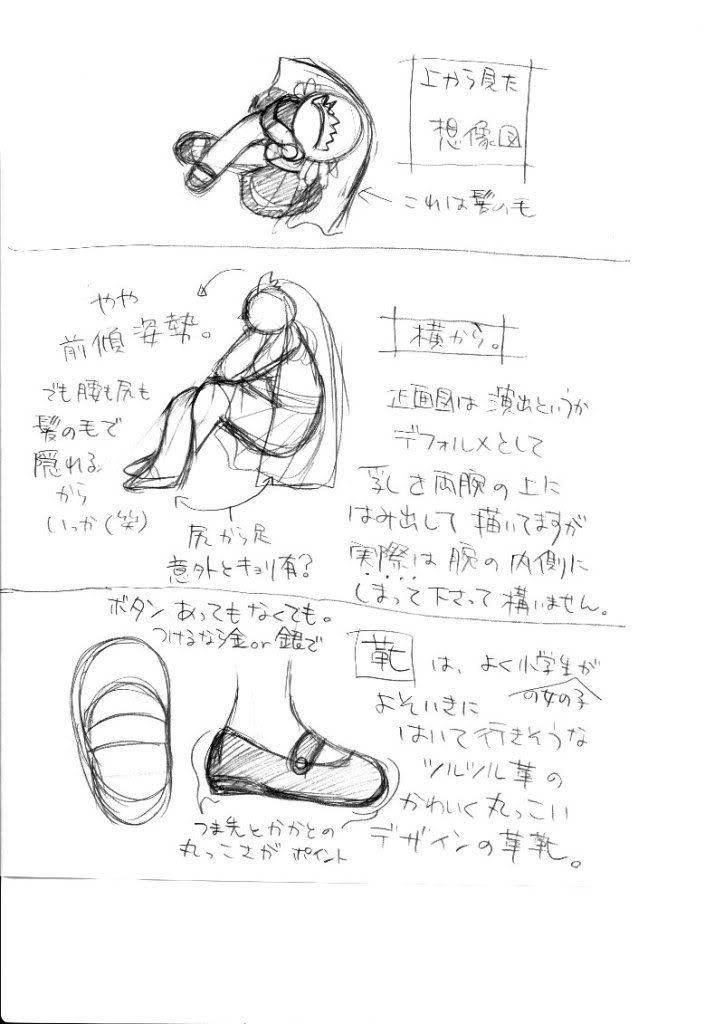 上から見た
想像図
← これは髪の毛
やや
前傾姿勢。
でも腰も尻も
髪の毛で
隠れる
から
いっか(笑)
尻から足
意外とキョリ有?
横から。
正面図は演出というか
デフォルメとして
乳を両腕の上に
はみ出して描いてますが
実際は腕の内側に
しまって下さって構いません。
ボタンあってもなくても。
つけるなら金or銀で
つま先とかかとの
丸っこさがポイント
靴は、よく小学生が
の女の子
よそいきに
はいて行きそうな
ツルツル革の
かわいく丸っこい
デザインの革靴。